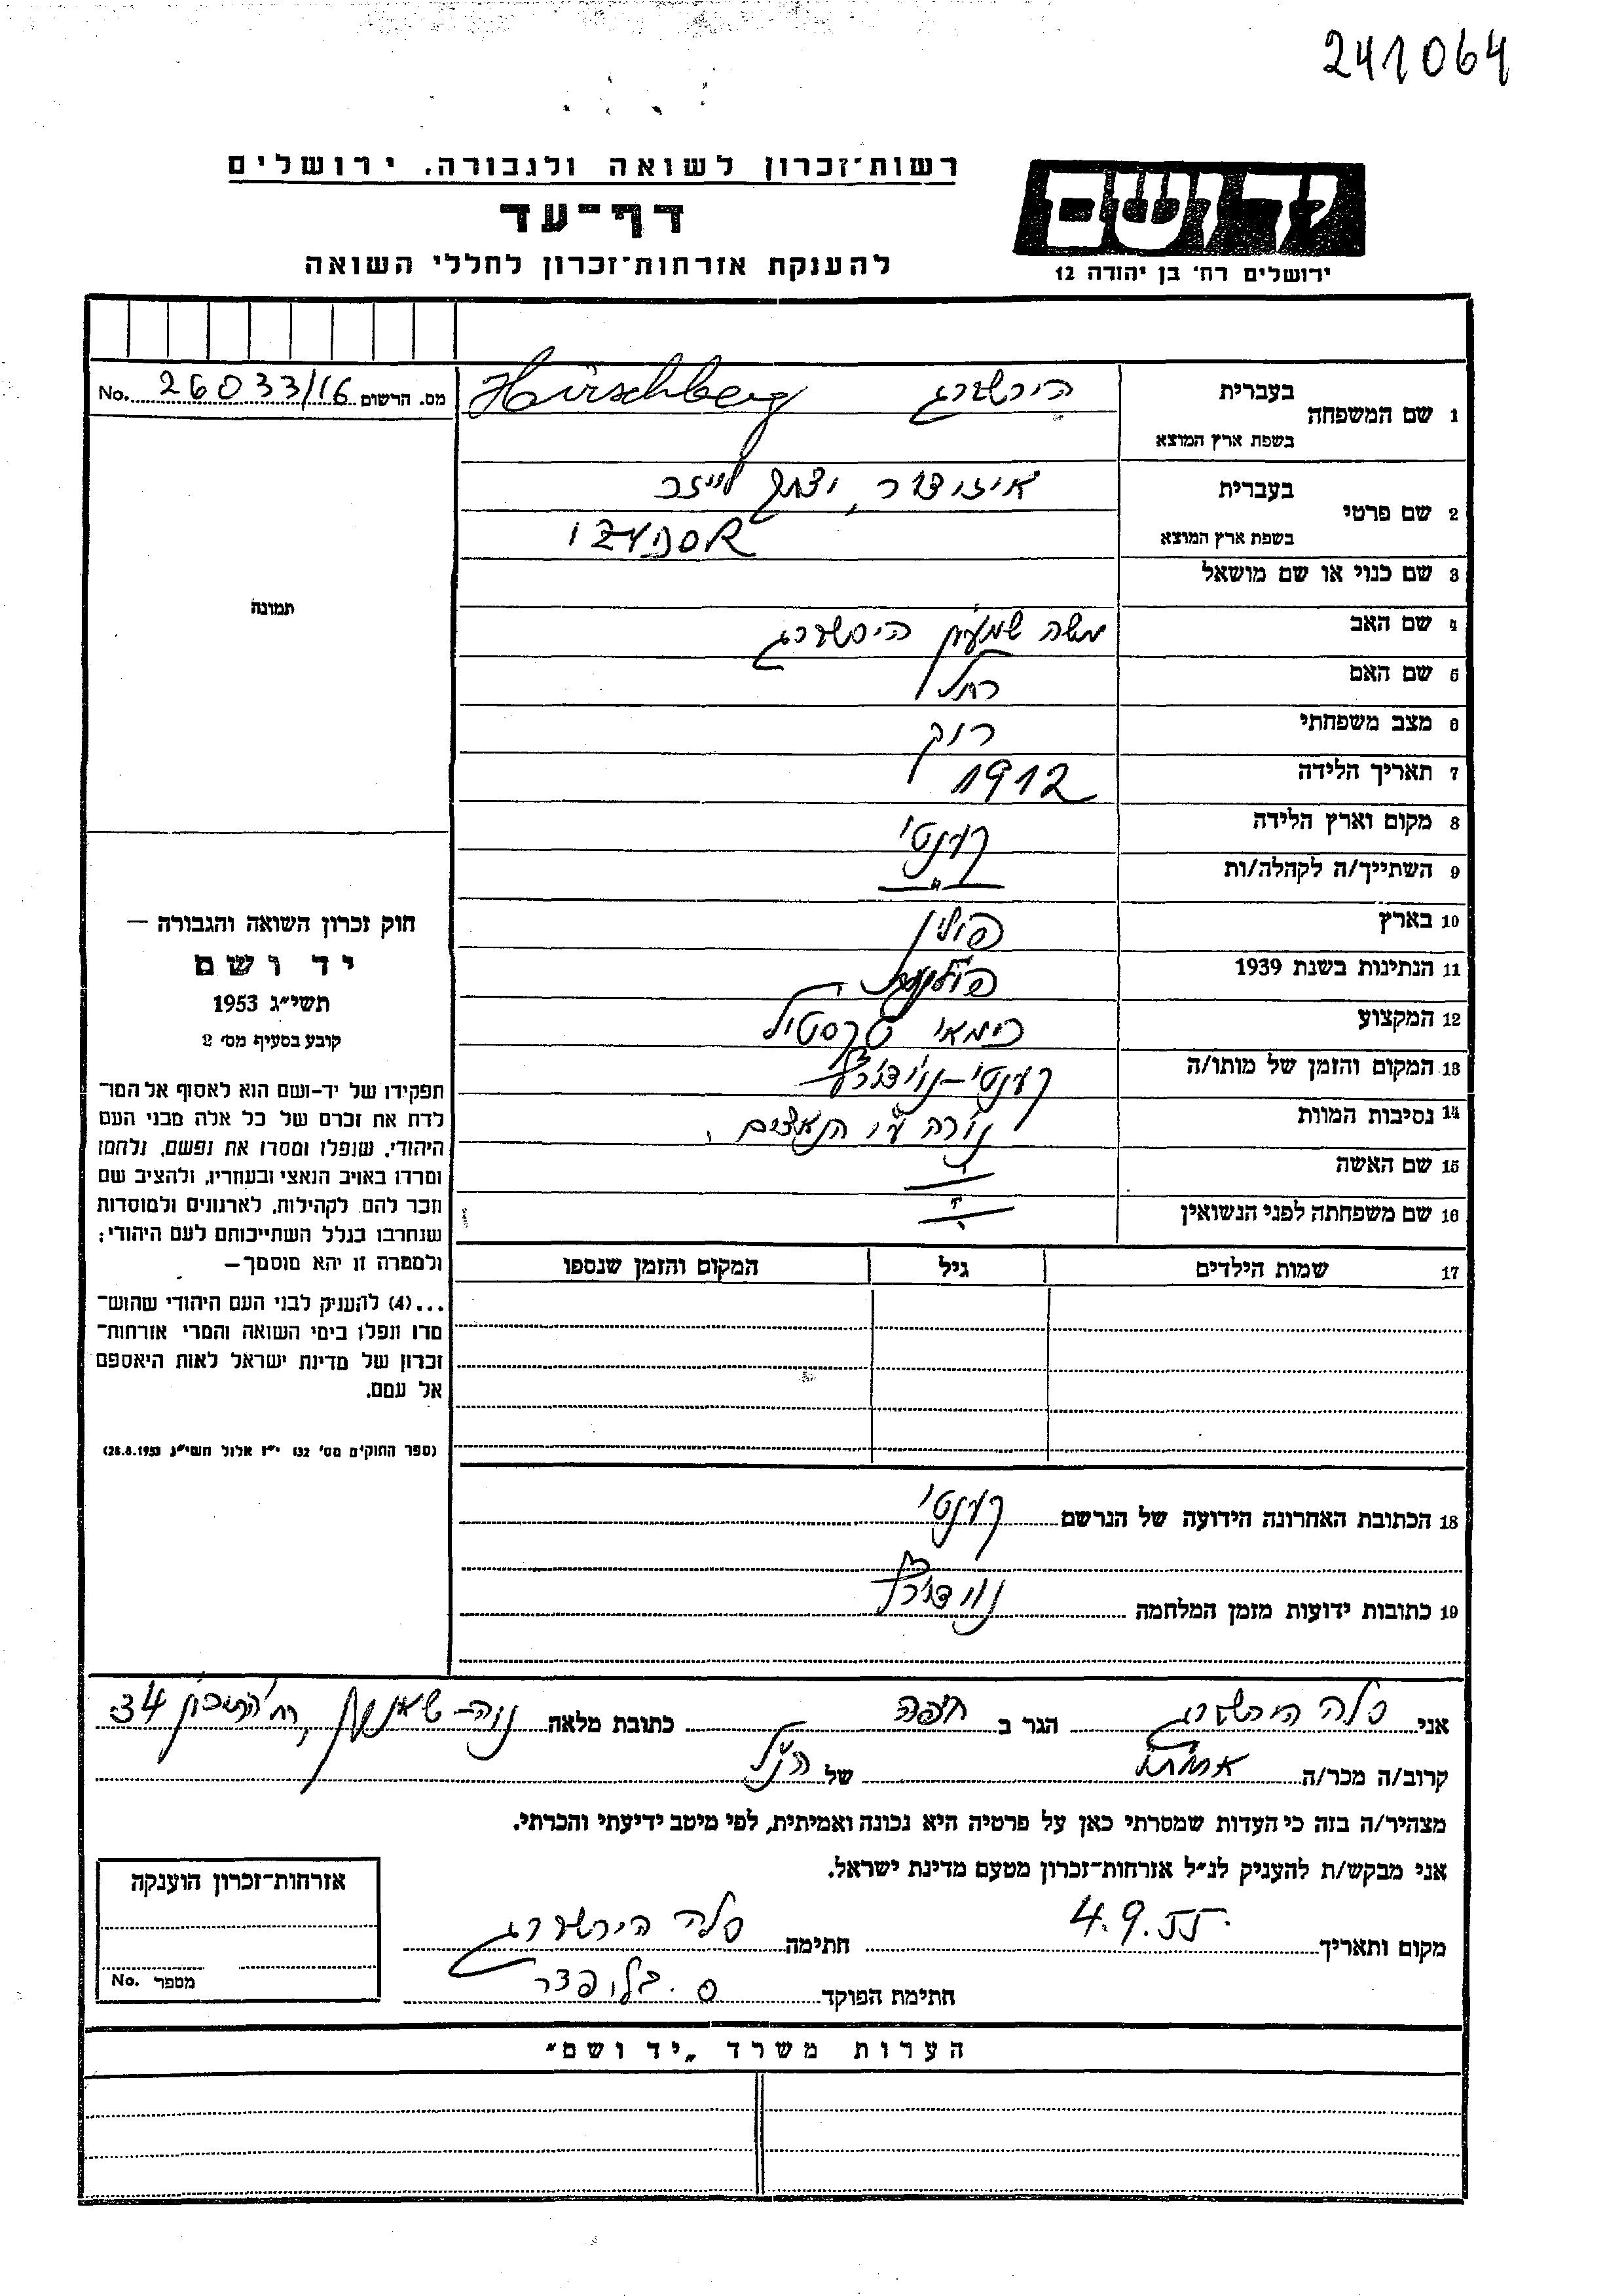 241064
רשות־זכרון לשואה ולגבורה. ירושלים
דף־עד
להענקת אזרחות־זכרון לחללי השואה
יד ושם
ירושלים רח' בן יהודה 12
מס. הרשום 26033/16 No.
1 שם המשפחה בעברית הירשברג Hirschberg
בשפת ארץ המוצא
2 שם פרטי בעברית איזידור, יצחק לייזר
בשפת ארץ המוצא
3 שם כנוי או שם מושאל
4 שם האב משה שמעון הירשברג
5 שם האם רחל
6 מצב משפחתי רווק
7 תאריך הלידה 1912
8 מקום וארץ הלידה קענטי
9 השתייך/ה לקהלה/ות – " –
10 בארץ פולין
11 הנתינות בשנת 1939 פולנית
12 המקצוע כימאי טקסטיל
13 המקום והזמן של מותו/ה קענטי-
14 נסיבות המוות נורה ע"י הנאצים.
15 שם האשה
16 שם משפחתה לפני הנשואין
17 שמות הילדים גיל המקום והזמן שנספו
תמונה
חוק זכרון השואה והגבורה —
יד ושם
תשי״ג 1953
קובע בסעיף מס׳ 2
תפקידו של יד-ושם הוא לאסוף אל המו־
לדת את זכרם של כל אלה מבני העם
היהודי, שנפלו ומסרו את נפשם, נלחמו
ומרדו באויב הנאצי ובעוזריו, ולהציב שם
וזכר להם לקהילות, לארגונים ולמוסדות
שנחרבו בגלל השתייכותם לעם היהודי;
ולמטרה זו יהא מוסמך—
...(4) להעניק לבני העם היהודי שהוש־
מדו ונפלו בימי השואה והמרי אזרחות־
זכרון של מדינת ישראל לאות היאספם
אל עמם.
(ספר החוקים מס׳ 132 י״ז אלול תשי״ג 28.8.1953)
18 הכתובת האחרונה הידועה של הנרשם קענטי
19 כתובות ידועות מזמן המלחמה
אני סלה הירשברג הגר ב חיפה כתובת מלאה נוה-שאנן, רח' התיכון 34
קרוב/ה מכר/ה אחות של הנ"ל
מצהיר/ה בזה כי העדות שמסרתי כאן על פרטיה היא נכונה ואמיתית, לפי מיטב ידיעתי והכרתי.
אני מבקש/ת להעניק לנ״ל אזרחות־זכרון מטעם מדינת ישראל.
מקום ותאריך 4.9.55 חתימה סלה הירשברג
חתימת הפוקד
אזרחות־זכרון הוענקה
מספר No.
הערות משרד „יד ושם״